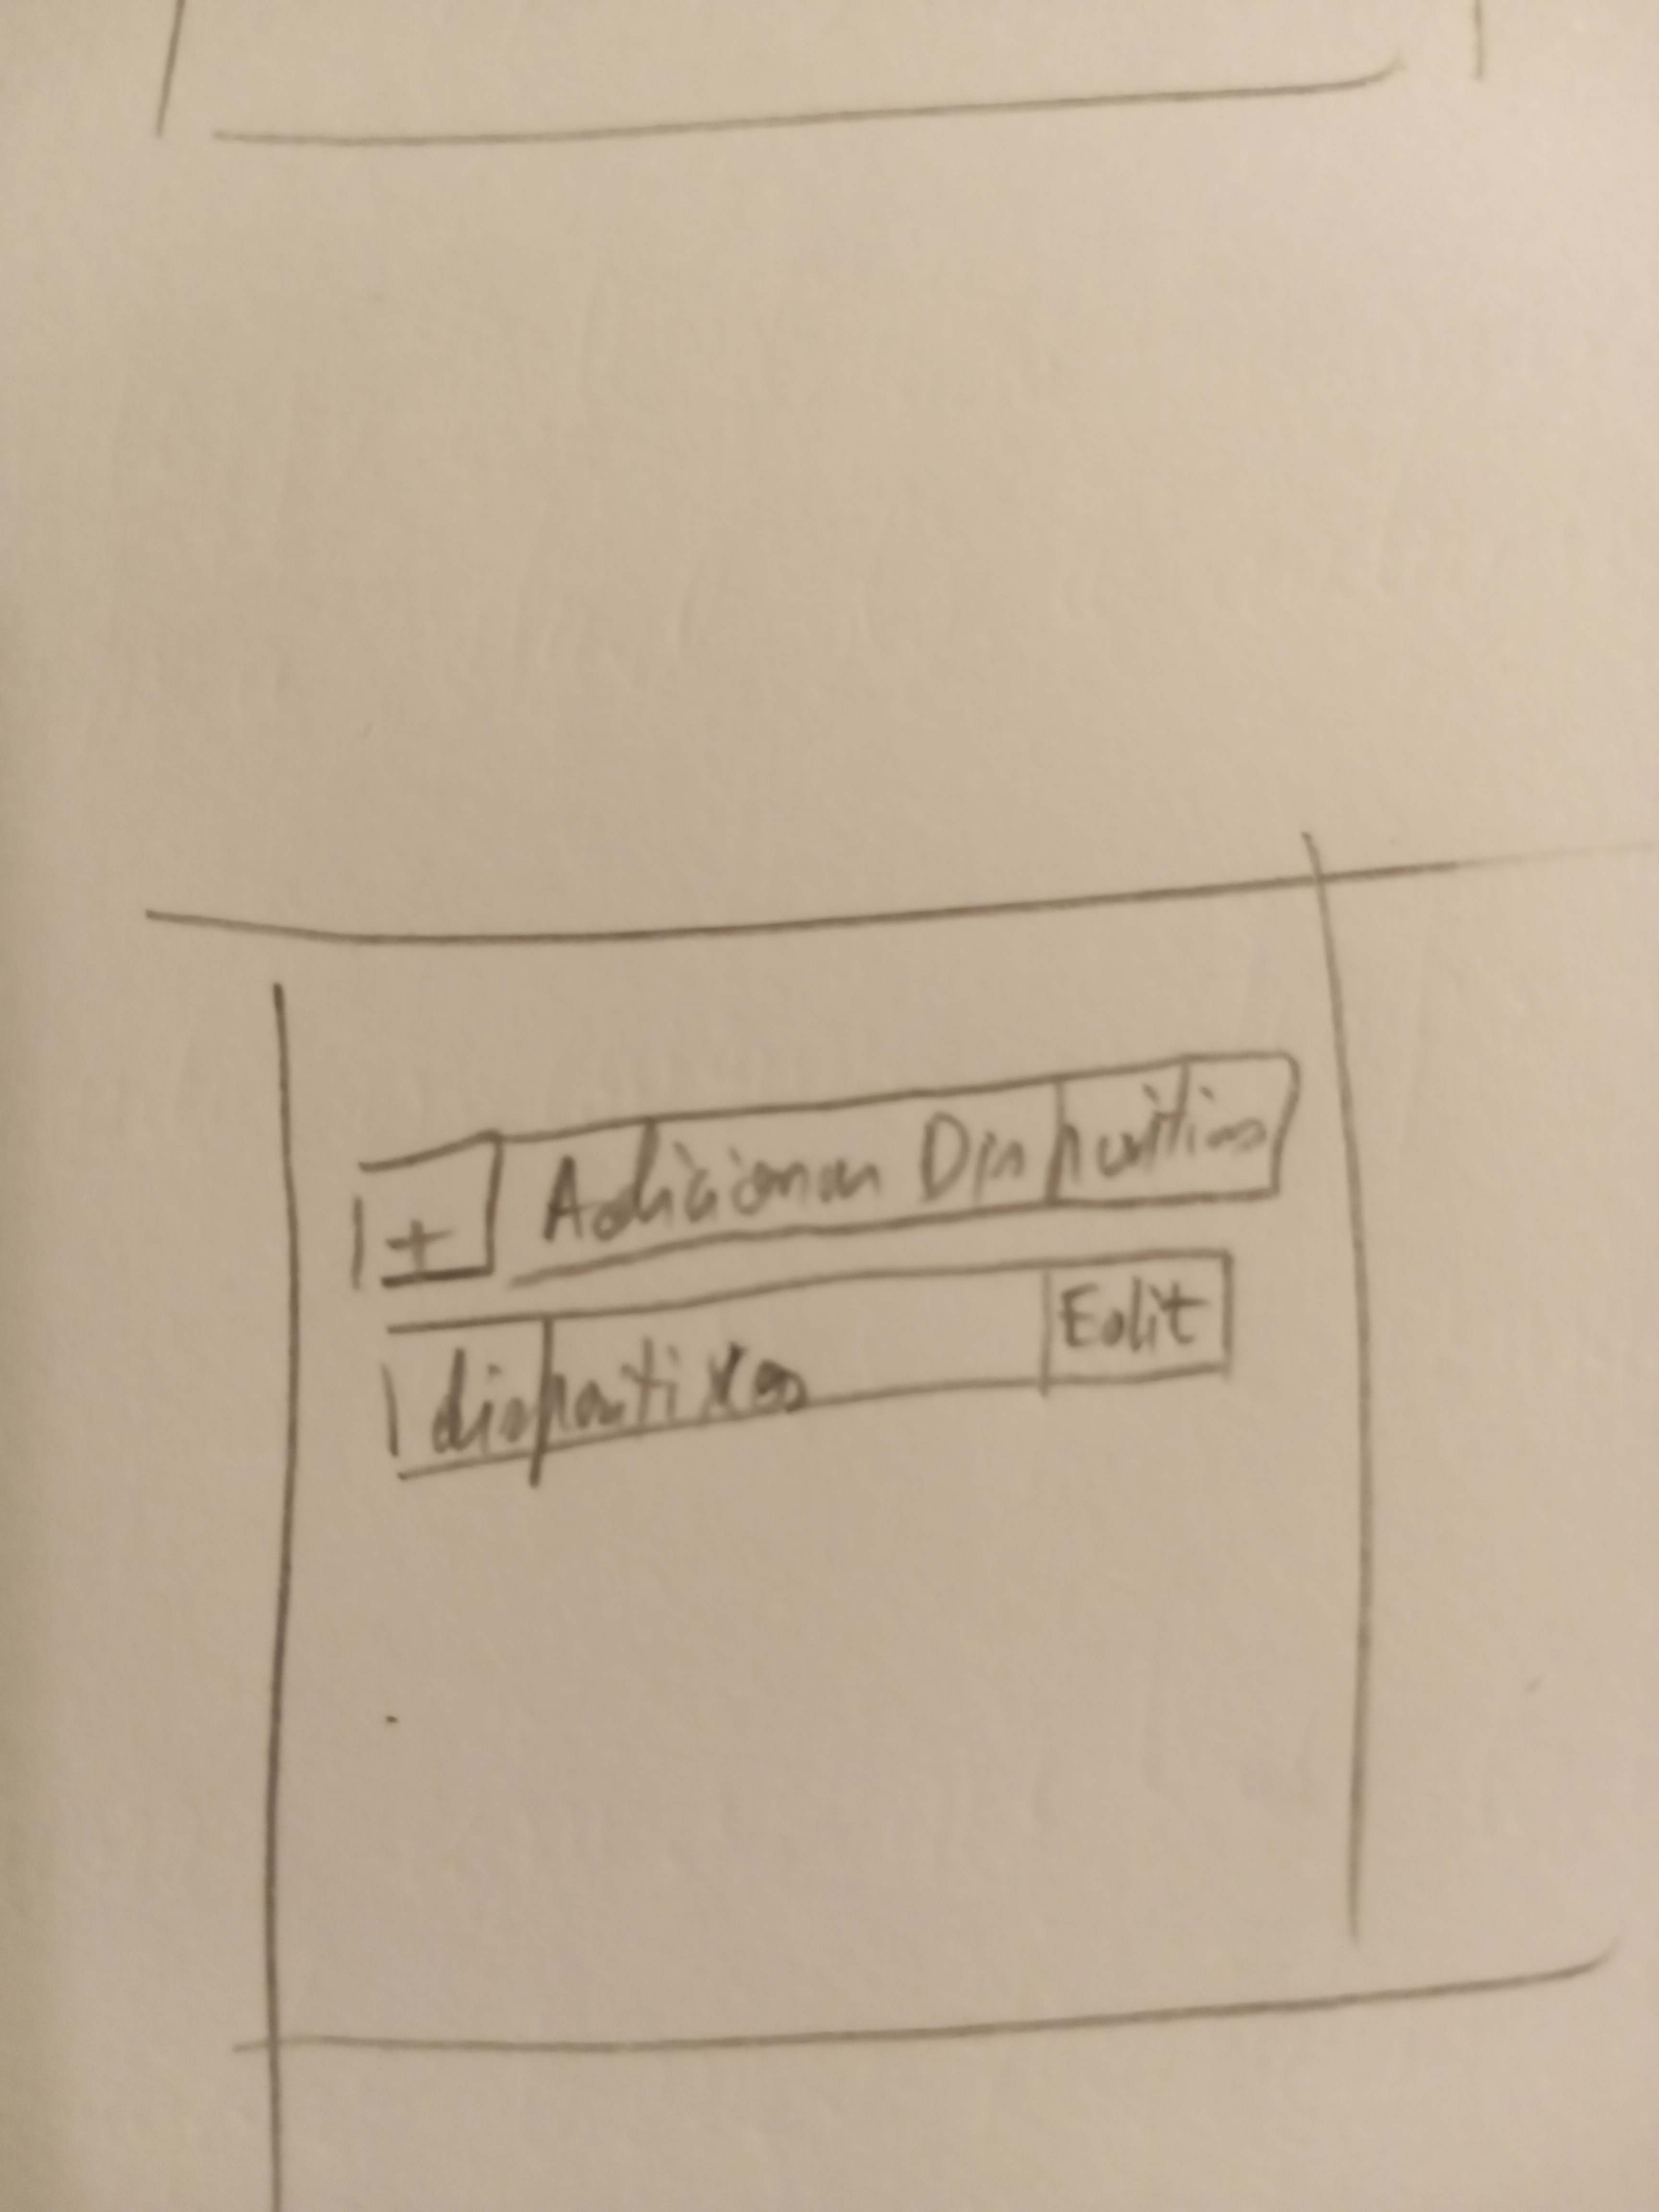 + Adicionar Dispositivo
dispositivo Edit